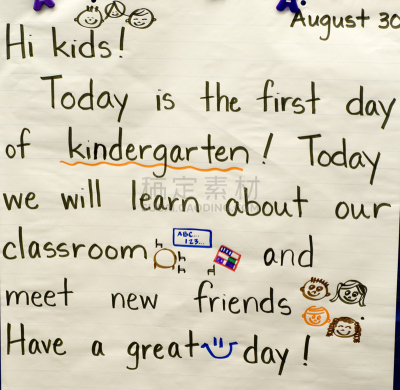 August 30
Hi kids!
Today is the first day
of kindergarten! Today
we will learn about our
classroom ABC... 123... and
meet new friends
Have a great day!